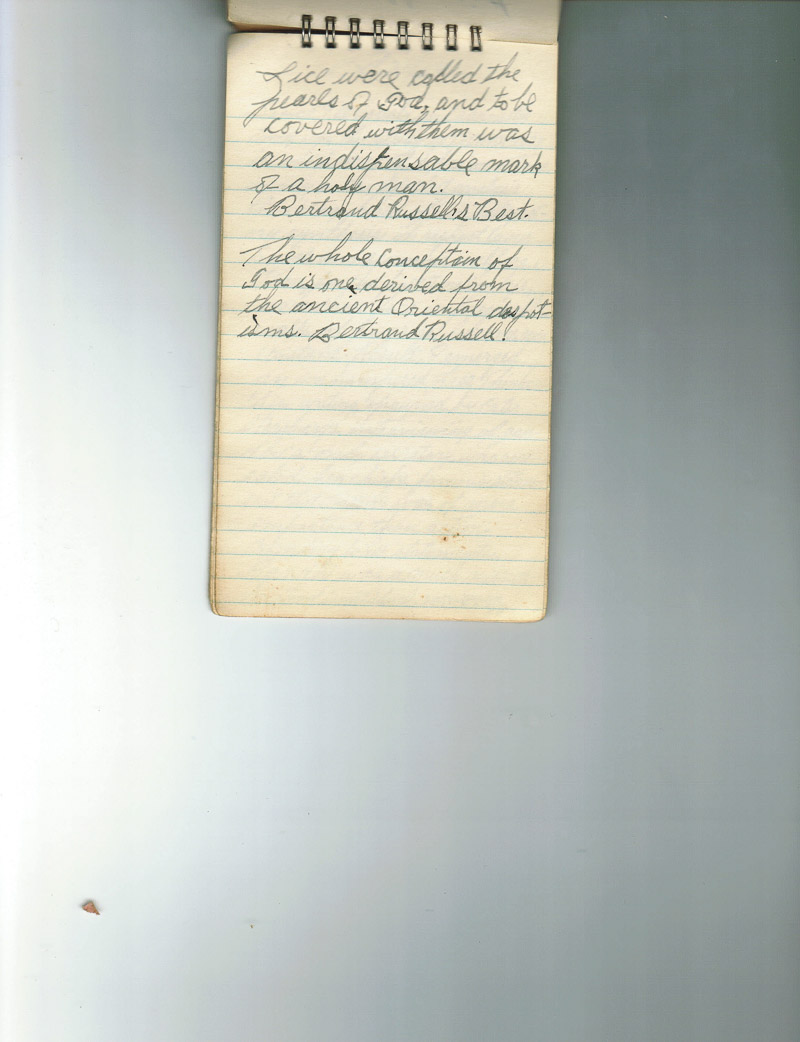 Lice were called the
pearls of God, and to be
covered with them was
an indispensable mark
of a holy man.
Bertrand Russell's Best.
The whole conception of
God is one derived from
the ancient Oriental despot-
isms. Bertrand Russell.